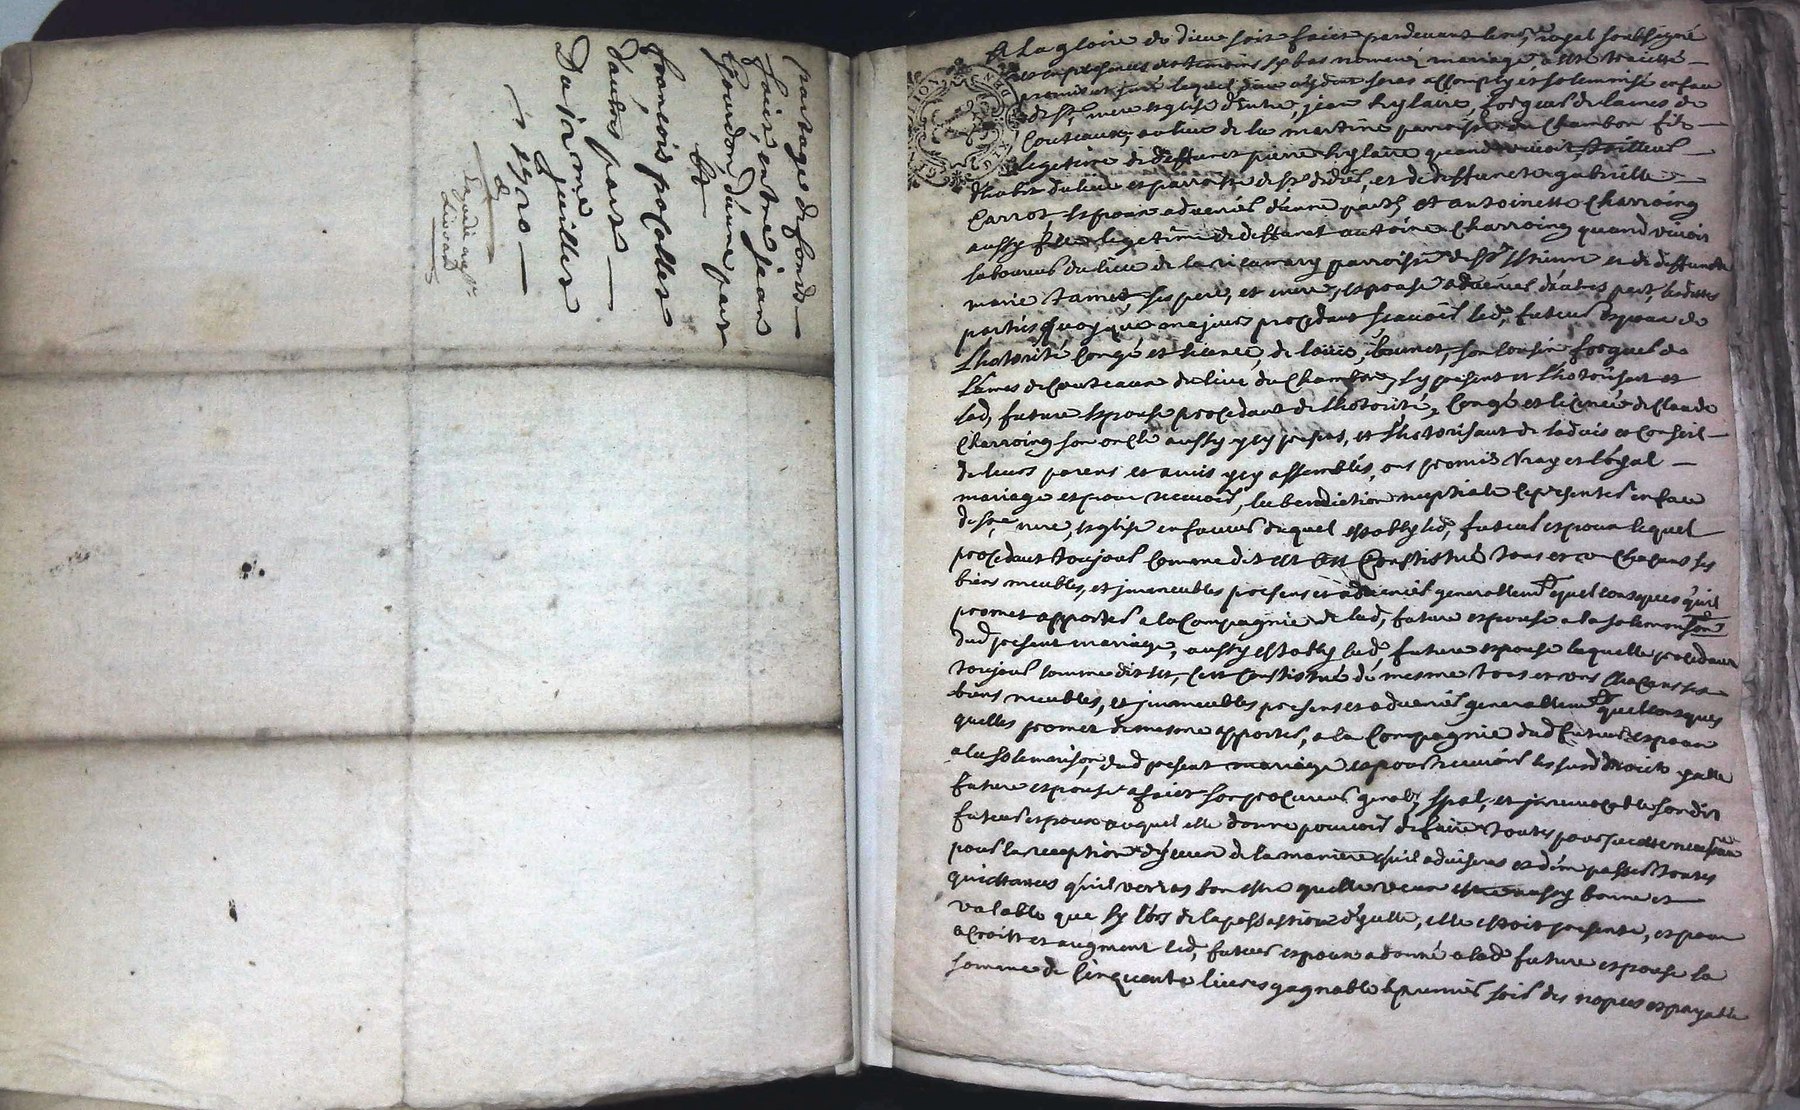 partage de fonds
faict entre jean
Gourdon d'une part
Et
francois pocolles
d'autre part
Du 12me
juillet
1720
A La gloire de dieu soit faict pardevant le no.re royal soubsigné
et en presence des temoins cy bas nommés mariage a esté traicté
promis et juré lequel dieu aydant sera accomply et solemnisé en face
de Ste mere esglise d'entre jean hylaire forgeur de lames de
Couteaux, du lieu de la martine parroisse du Chambon fils
legitime de deffunct pierre hylaire quand vivoit tailleur
dhabit du lieu et parroisse de St didier, et de deffuncte gabrielle
Carrot, Espoux advenir d'une part, et antoinette Charroing
aussy fille legetime de deffunct antoine Charroing quand vivoit
laboureur du lieu de la ricamary parroisse de St Estienne et de deffuncte
marie Tamet, ses pere, et mere, espouse advenir d'autre part, lesdittes
parties quoyque majeurs procedant scavoir led, futeur Espoux de
Lhotorité Congé et licence, de louis brunet, son cousin forgeur de
Lames de Couteaux du lieu du Chambon, cy present et Lhotorisant et
lad, future Espouse procedant de Lhotorité, Congé et licence de Claude
Charroing son oncle aussy ycy present, et Lhotorisant de ladvis et Conseil
de leurs parens et amis ycy assemblés, ont promis Vray et Légal
mariage et pour recevoir, la benediction nuptiale se presenter en face
de Ste mere, Esglise en faveur duquel estably led, futeur espoux lequel
procedant toujours Comme dit est Cest Constitué tous et un Chacuns ses
biens meubles, et jmmeubles presens et advenir generallemt quelconques qu'il
promet apporter a la Compagnie de lad, future espouse a la solemnison
dud present mariage, aussy estably lad, future espouse laquelle procedant
toujours comme dit est, Cest Constitué de mesme tous et uns Chacuns ses
biens meubles, et jmmeubles presens et advenir generallemt quelconques
quelles promet de mesme apporter, a la Compagnie dud futeur espoux
a la solemnison, dud present mariage et pour recevoir les susd droicts yselle
future espouse a faict son procureur genal, spal, et jrrevocable son dit
futeur espoux auquel elle donne pouvoir de faire toutes poursuittes necessaire
pour la reception d'yceux de la maniere qu'il advisera et d'en passer toutes
quictances qu'il verra bon estre quelle veux estre aussy bonne et
valable que sy lors de la passation d'yselle, elle estoit presente, et pour
acroist et augment led, futeur espoux a donné a lad future espouse la
somme de Cinquante livres gagnable le premier soir des nopces et payable